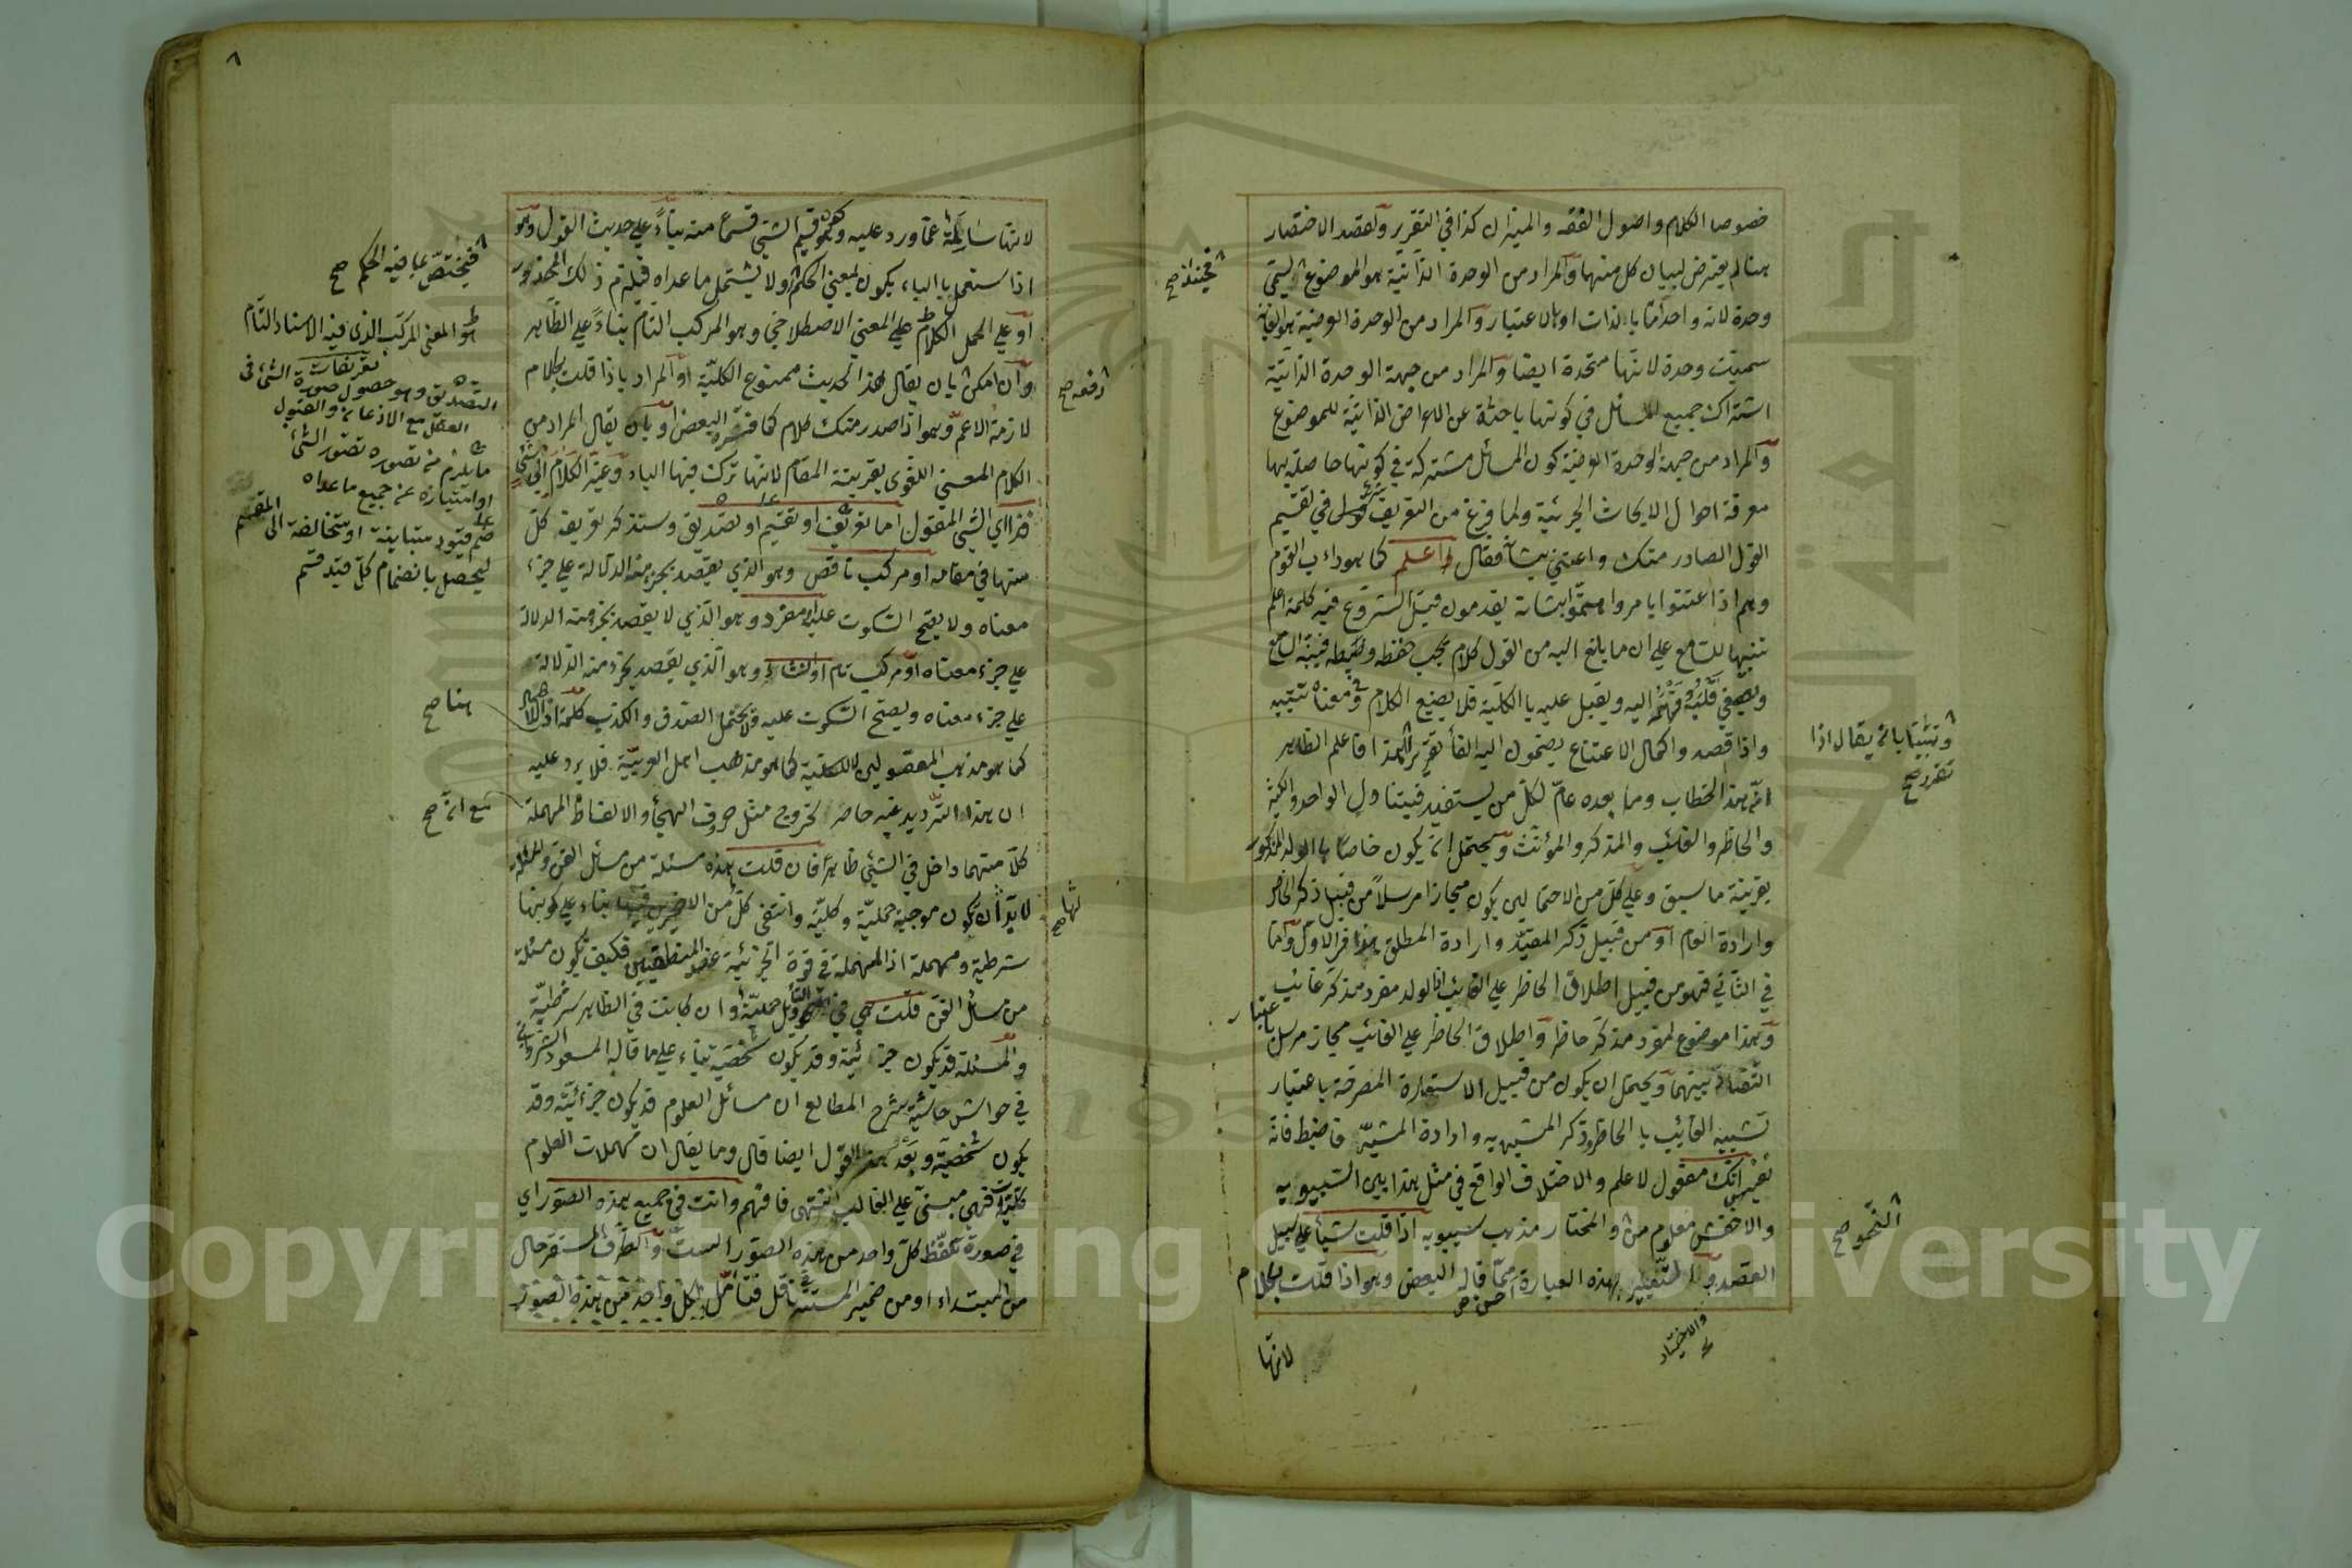 خصوصا الكلام واصول الفقه والميزان كذا في التقرير ولقصد الاختصار
هنا لم يعترض لبيان كل منهما والمراد من الوحدة الذاتية هو الموضوع ليسمى
وحدة لانه واحد اما بالذات او بالاعتبار والمراد من الوحدة العرضية هو الغاية
سميت وحدة لانها متحدة ايضا والمراد من جهة الوحدة الذاتية
اشتراك جميع المسائل في كونها باحثة عن الاعراض الذاتية للموضوع
والمراد من جهة الوحدة العرضية كون المسائل مشتركة في كونها حاصلة بها
معرفة احوال الابحاث الجزئية ولما فرغ من التعريف شرع في تقسيم
القول الصادر منك واعتنى بشأنه فقال واعلم كما هو داب القوم
وهم اذا اعتنوا بامر واهتموا بشانه يقدمون قبل الشروع فيه كلمة اعلم
تنبيها للسامع على ان ما يلقى اليه من القول كلام يجب حفظه وضبطه فينبه السامع
ويصغي قلبه وفهمه اليه ويقبل عليه بالكلية فلا يضيع الكلام
واذا قصدوا كمال الاعتناء يضمون اليه الفا
هذا الخطاب وما بعده عام لكل من يستفيد فيتناول الواحد والكثير
والحاظر والغائب والمذكر والمؤنث ويحتمل ان يكون خاصا بالولد المذكور
بقرينة ما سبق وعلى كل من الاحتمالين يكون مجازا مرسلا من قبيل ذكر الخاص
وارادة العام او من قبيل ذكر المقيد وارادة المطلق هذا في الاول واما
في الثاني فهو من قبيل اطلاق الحاظر على الغائب اذ الولد مفرد مذكر غائب
وهذا موضوع لمفرد مذكر حاظر واطلاق الحاظر على الغائب مجاز مرسل باعتبار
التضاد بينهما ويحتمل ان يكون من قبيل الاستعارة المصرحة باعتبار
تشبيه الغائب بالحاظر وذكر المشبه به وارادة المشبه فاضبط فانه
نفيس انك مفعول لاعلم والاختلاف الواقع في مثل هذا بين السيبويه
والاخفش معلوم من والمختار مذهب سيبويه اذا قلت شيأ على سبيل
القصد والتعبير بهذه العبارة احسن مما قاله البعض وهو اذا قلت بكلام
لانها
فحينئذ صح
وتنبيها بانه يقال اذا
تقرر صح
النحو صح
والاختيار
٨
لانها سالمة عما ورد عليه وهو كون قسيم الشيء قسما منه بناء على حديث القول وهو
اذا استعمل بالباء يكون بمعنى الحكم ولا يشتمل ما عداه فيلزم ذلك المحذور
او على المحل الكلام على المعنى الاصطلاحي وهو المركب التام بناء على الظاهر
وان امكن بان يقال هذا الحديث ممنوع الكلية او المراد باذا قلت بكلام
لازمه الاعم وهو اذا صدر منك كلام كما فسره البعض او بان يقال المراد من
الكلام المعنى اللغوي بقرينة المقام لانها ترك فيها الباء وغير الكلام الى شيء
فذا اي الشيء المقول اما تعريف او تقسيم او تصديق وستذكر تعريف كل
منها في مقامه او مركب ناقص وهو الذي يقصد بجزء منه الدلالة على جزء
معناه ولا يصح السكوت عليه او مفرد وهو الذي لا يقصد بجزء منه الدلالة
على جزء معناه او مركب تام انشاء وهو الذي يقصد بجزء منه الدلالة
على جزء معناه ويصح السكوت عليه فلا يحتمل الصدق والكذب كلمة او
كما هو مذهب المعقوليين لا الكلية كما هو مذهب اهل العربية فلا يرد عليه
ان هذا الترديد غير حاصر لخروج مثل حروف الهجاء والالفاظ المهملة
كلا منهما داخل في الشيء ظاهرا فان قلت هذه مسئلة من مسائل الفن والمسئلة
لا بد ان يكون موجبة حملية وكلية وانتفى كل من الاخيرين فيها بناء على كونها
شرطية ومهملة اذ المهملة في قوة الجزئية عند المنطقيين فكيف تكون مسئلة
من مسائل الفن قلت هي في التأويل حملية وان كانت في الظاهر شرطية
والمسئلة قد يكون جزئية وقد يكون شخصية بناء على ما قاله المسعود الشرواني
في حواش حاشية شرح المطالع ان مسائل العلوم قد يكون جزئية وقد
يكون شخصية وبعد هذا القول ايضا قال وما يقال ان مهملات العلوم
كلية فهي مبنى على الغالب انتهى فافهم وانت في جميع هذه الصور اي
في صورة تلفظ كل واحد من هذه الصور الست والظرف المستقر حال
من المبتداء او من ضمير المستتر في ناقل فتأمل لكل واحد من هذه الصور
فيختص بما فيه الحكم صح
هو المعنى المركب الذي فيه الاسناد التام
تعريفات
التصديق وهو حصول صورة الشئ في
العقل مع الاذعان والقبول
ما يلزم من تصوره تصور الشئ
او امتيازه عن جميع ما عداه
ضم قيود متباينة او متخالفة الى المقسم
ليحصل بانضمام كل قيد قسم
هنا صح
مع ان صح
دفعه صح
لها صح
Copyright © King Saud University